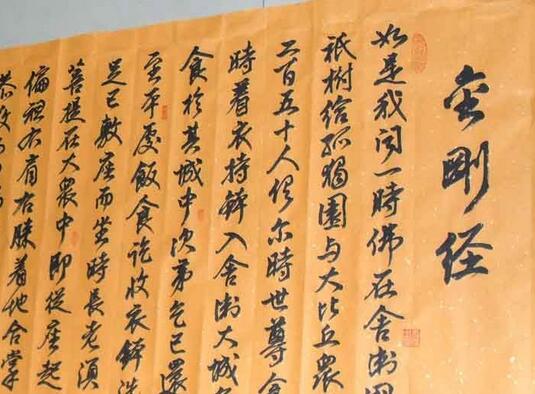 金剛经
如是我闻一時佛在舍衛國
祇樹给孤獨園與大比丘衆
二百五十人俱尔時世尊食
時着衣持鉢入舍衛大城乞
食於其城中次第乞已還
至本處飯食讫收衣鉢洗
足已敷座而坐時長老須
菩提在大衆中即從座起
偏袒右肩右膝着地合掌
恭敬而白